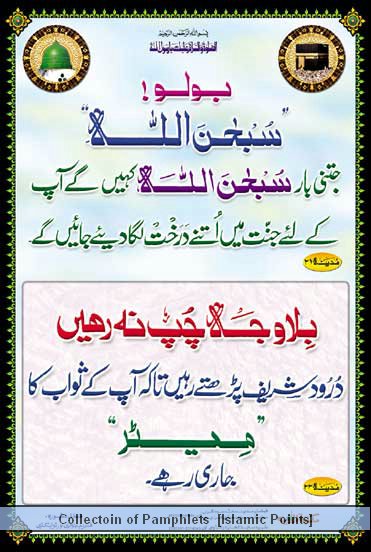 بولو!
"سُبْحٰنَ اللّٰہ"
جتنی بار سُبْحٰنَ اللّٰہ کہیں گے آپ
کے لئے جنّت میں اُتنے دَرَخْتْ لگا دیئے جائیں گے۔
مدینہ ۴۱
بِلا وجہ چُپ نہ رھیں
دُرُود شریف پڑھتے رہیں تاکہ آپ کے ثواب کا
"مِیٹر"
جاری رہے۔
Collectoin of Pamphlets [Islamic Points]